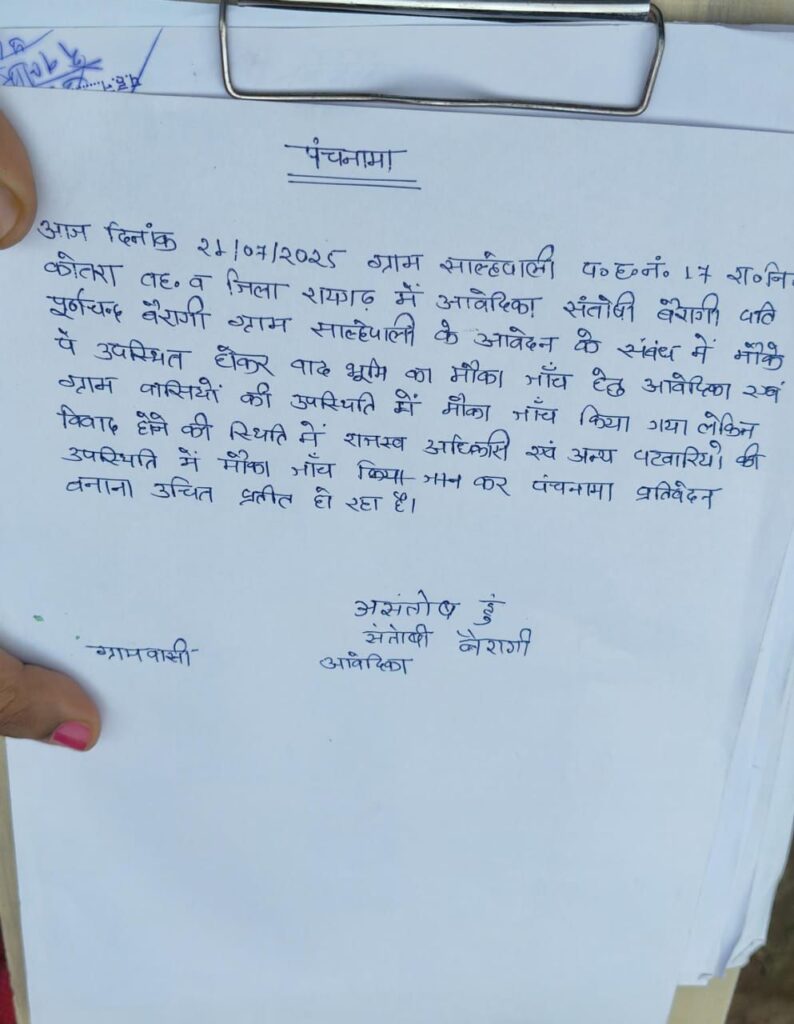 पंचनामा
आज दिनांक 21/07/2025 ग्राम साल्हेपाली प०ह०नं० 17 रा०नि
कोतरा तह० व जिला रायगढ़ में आवेदिका संतोषी बैरागी पति
पूर्णचन्द बैरागी ग्राम साल्हेपाली के आवेदन के संबंध में मौके
पे उपस्थित होकर वाद भूमि का मौका जाँच हेतु आवेदिका एवं
ग्राम वासियों की उपस्थिति में मौका जाँच किया गया लेकिन
विवाद होने की स्थिति में राजस्व एवं अन्य पटवारियों की
उपस्थिति में मौका जाँच किया जान कर पंचनामा प्रतिवेदन
बनाना उचित प्रतीत हो रहा है।
असंतोष हुं
संतोषी बैरागी
ग्रामवासी आवेदिका